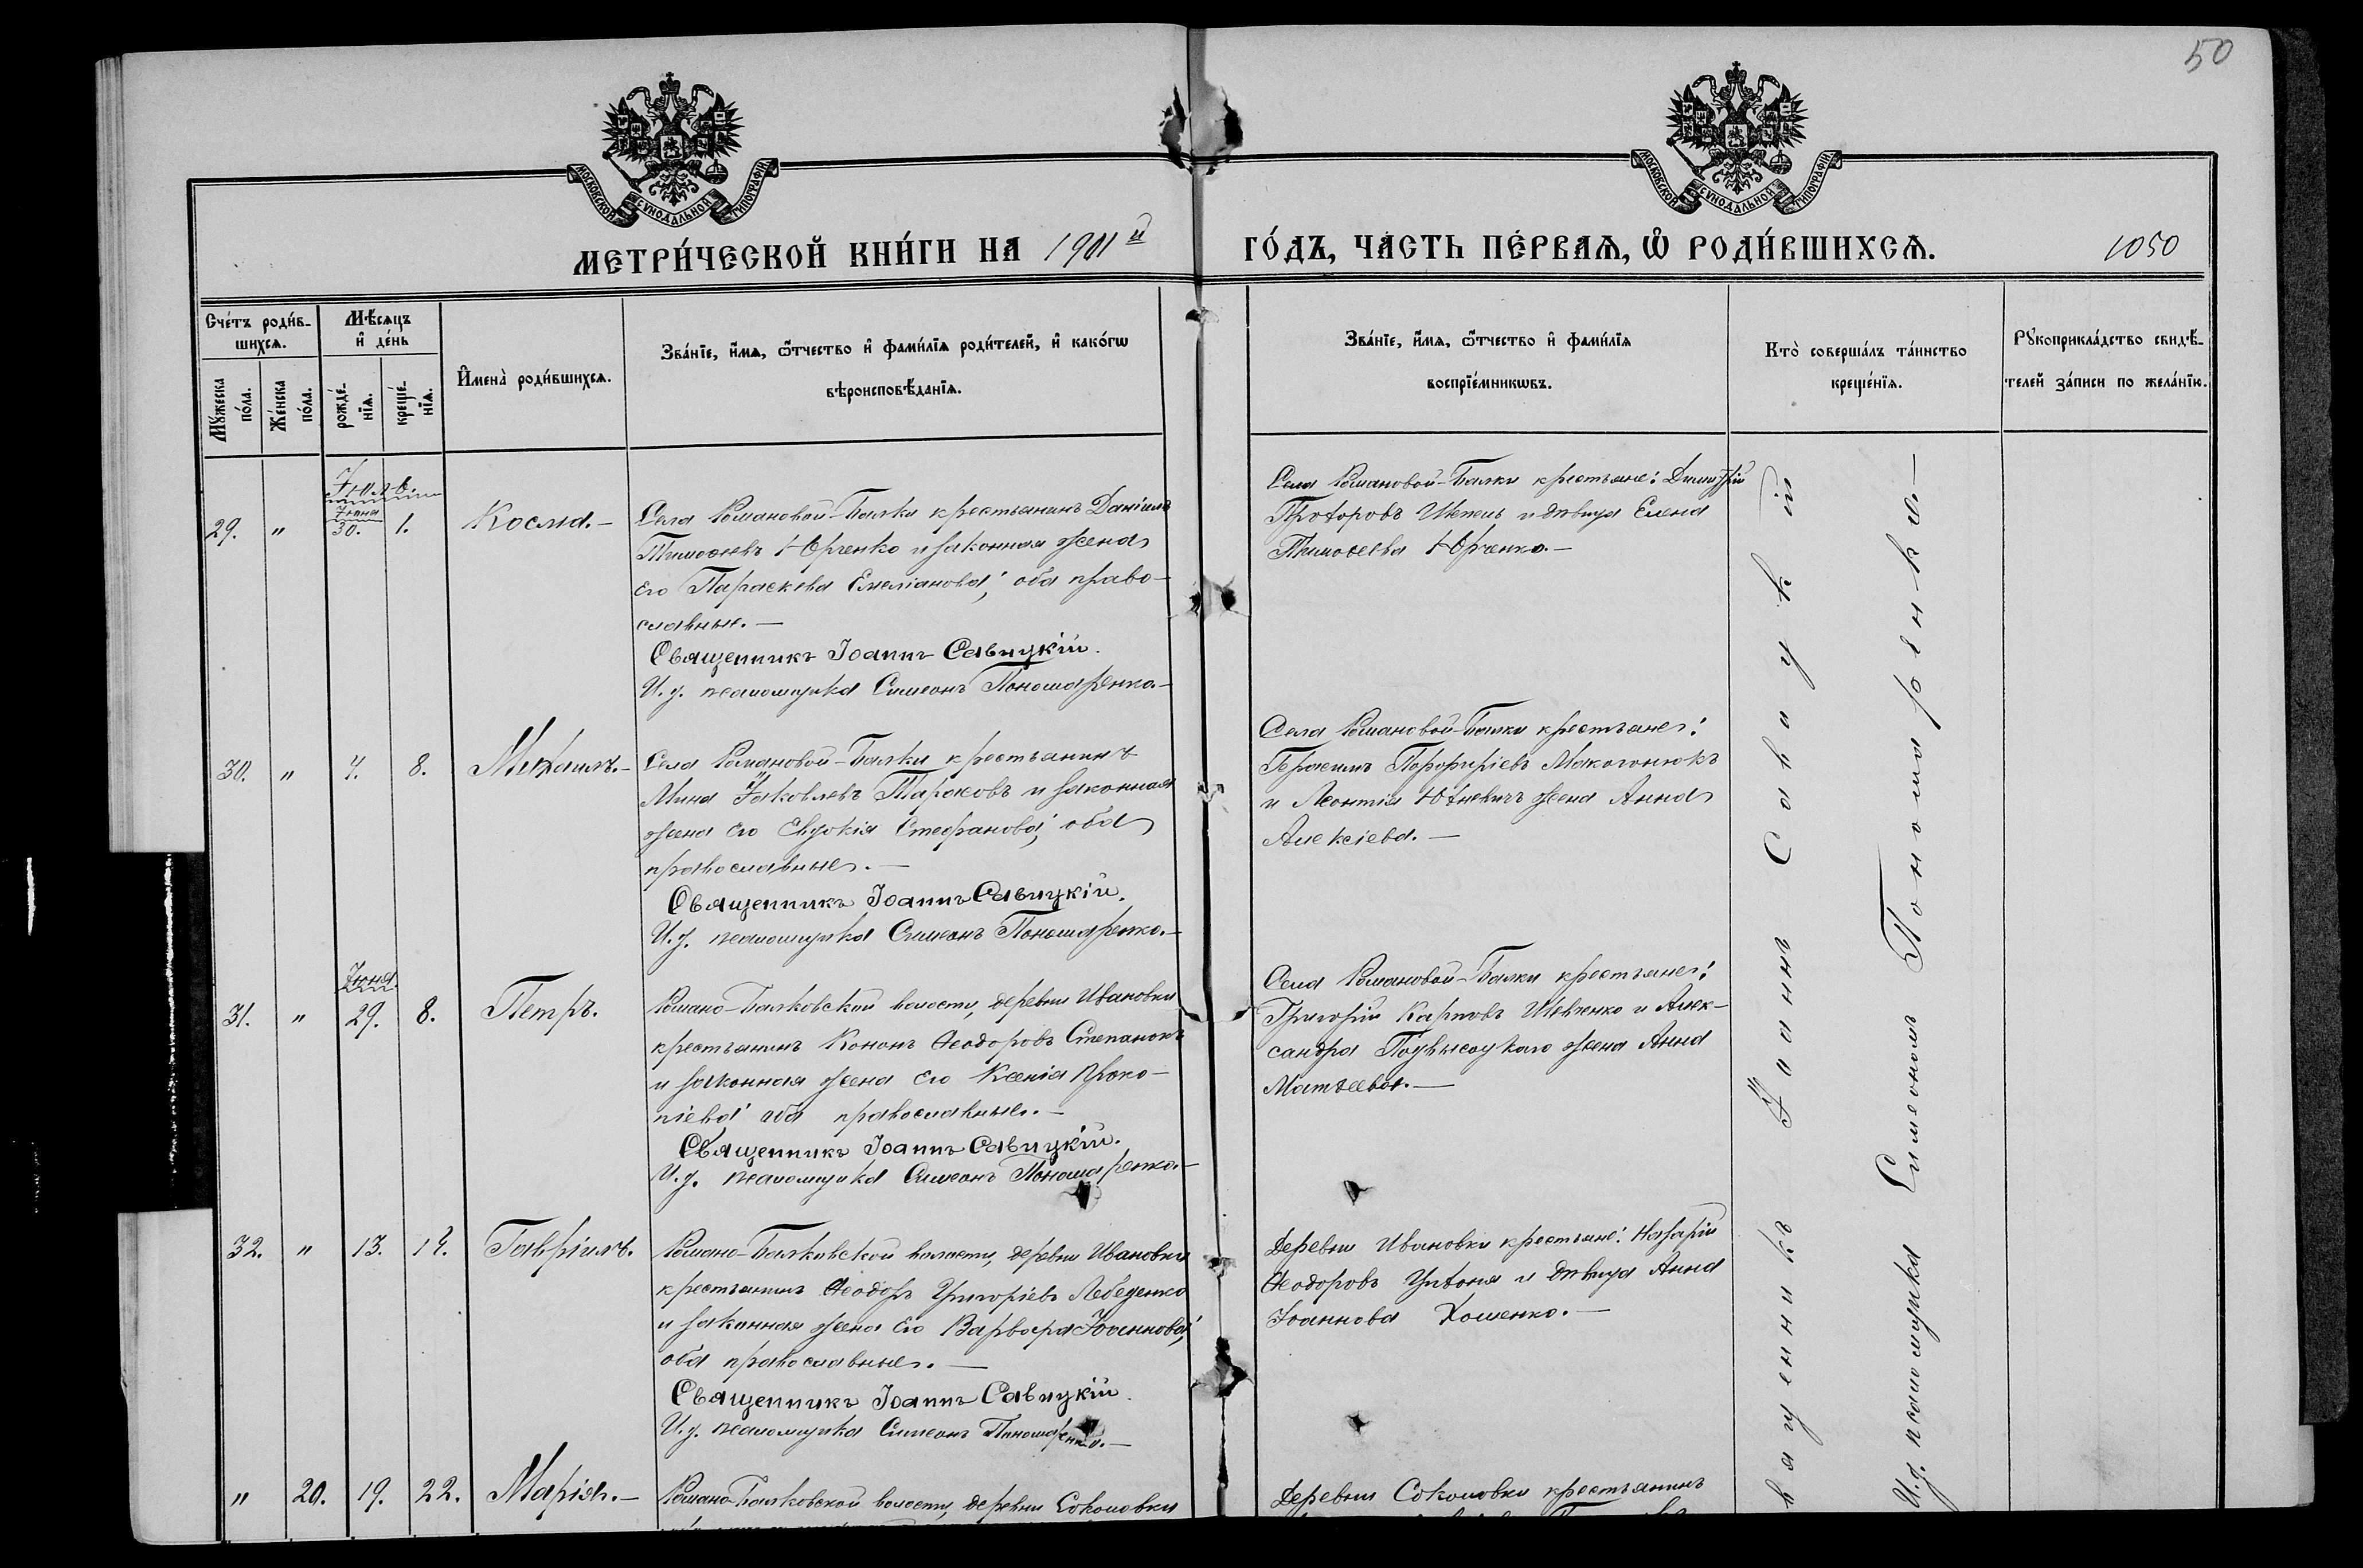 50
МОСКОВСКОЙ СѴНОДАЛЬНОЙ ТИПОГРАФІИ
МОСКОВСКОЙ СѴНОДАЛЬНОЙ ТИПОГРАФІИ
МЕТРИ́ЧЕСКОЙ КНИ́ГИ НА 1901й
ГО́ДЪ, ЧА́СТЬ ПЕ́РВАѦ, Ѡ҆ РОДИ́ВШИХСѦ.
1050
Сче́тъ роди́в-
шихсѧ.
Мꙋ́жеска по́ла.
Же́нска по́ла.
Мѣ́сѧцъ
и҆ де́нь
рожде́-
нїѧ.
креще́-
нїѧ.
И҆мена̀ роди́вшихсѧ.
Зва́нїе, и҆́мѧ, ѻ҆́тчество и҆ фами́лїѧ роди́телей, и҆ како́гѡ
вѣроисповѣ́данїѧ.
Зва́нїе, и҆́мѧ, ѻ҆́тчество и҆ фами́лїѧ
воспрїе́мникѡвъ.
Кто̀ соверша́лъ та́инство
креще́нїѧ.
Рꙋкоприкла́дство свидѣ́-
телей за́писи по жела́нїю.
Іюль.
Іюня
29. " 30. 1. Косма.-
Села Романовой-Балки крестьянинъ Даніилъ
Тимоѳеевъ Юрченко и законная жена
его Параскева Емеліанова; оба право-
славные.-
Священникъ Іоаннъ Савицкій.
И.д. псаломщика Симеонъ Пономаренко.-
Села Романовой-Балки крестьяне: Димитрій
Прохоровъ Шепель и дѣвица Елена
Тимоѳеева Юрченко.-
30. " 4. 8. Михаилъ.-
Села Романовой-Балки крестьянинъ
Мина Іаковлевъ Тарасовъ и законная
жена его Евдокія Стефанова; оба
православные.-
Священникъ Іоаннъ Савицкій.
И.д. псаломщика Симеонъ Пономаренко.-
Села Романовой-Балки крестьяне:
Герасимъ Порфиріевъ Макогонюкъ
и Леонтія жена Анна
Алексіева.-
Іюня.
31. " 29. 8. Петръ.
Романо-Балковской волости, деревни Ивановки
крестьянинъ Кононъ Ѳеодоровъ Степанокъ
и законная жена его Ксенія Проко-
піева; оба православные.-
Священникъ Іоаннъ Савицкій.
И.д. псаломщика Симеонъ Пономаренко.-
Села Романовой-Балки крестьяне:
Григорій Карповъ Шевченко и Алек-
сандра Подвысоцкаго жена Анна
Матѳеева.-
32. " 13. 14. Гавріилъ.
Романо-Балковской волости, деревни Ивановки
крестьянинъ Ѳеодоръ Григоріевъ Лебеденко
и законная жена его Варвара Іоаннова;
оба православные.-
Священникъ Іоаннъ Савицкій.
И.д. псаломщика Симеонъ Пономаренко.-
Деревни Ивановки крестьяне: Назарій
Ѳеодоровъ и дѣвица Анна
Іоаннова Хоменко.-
" 20. 19. 22. Марія.-
Романо-Балковской волости, деревни Соколовки
Деревни Соколовки крестьянинъ
вященникъ Іоаннъ Савицкій
И.д. псаломщика Симеономъ Пономаренко.-